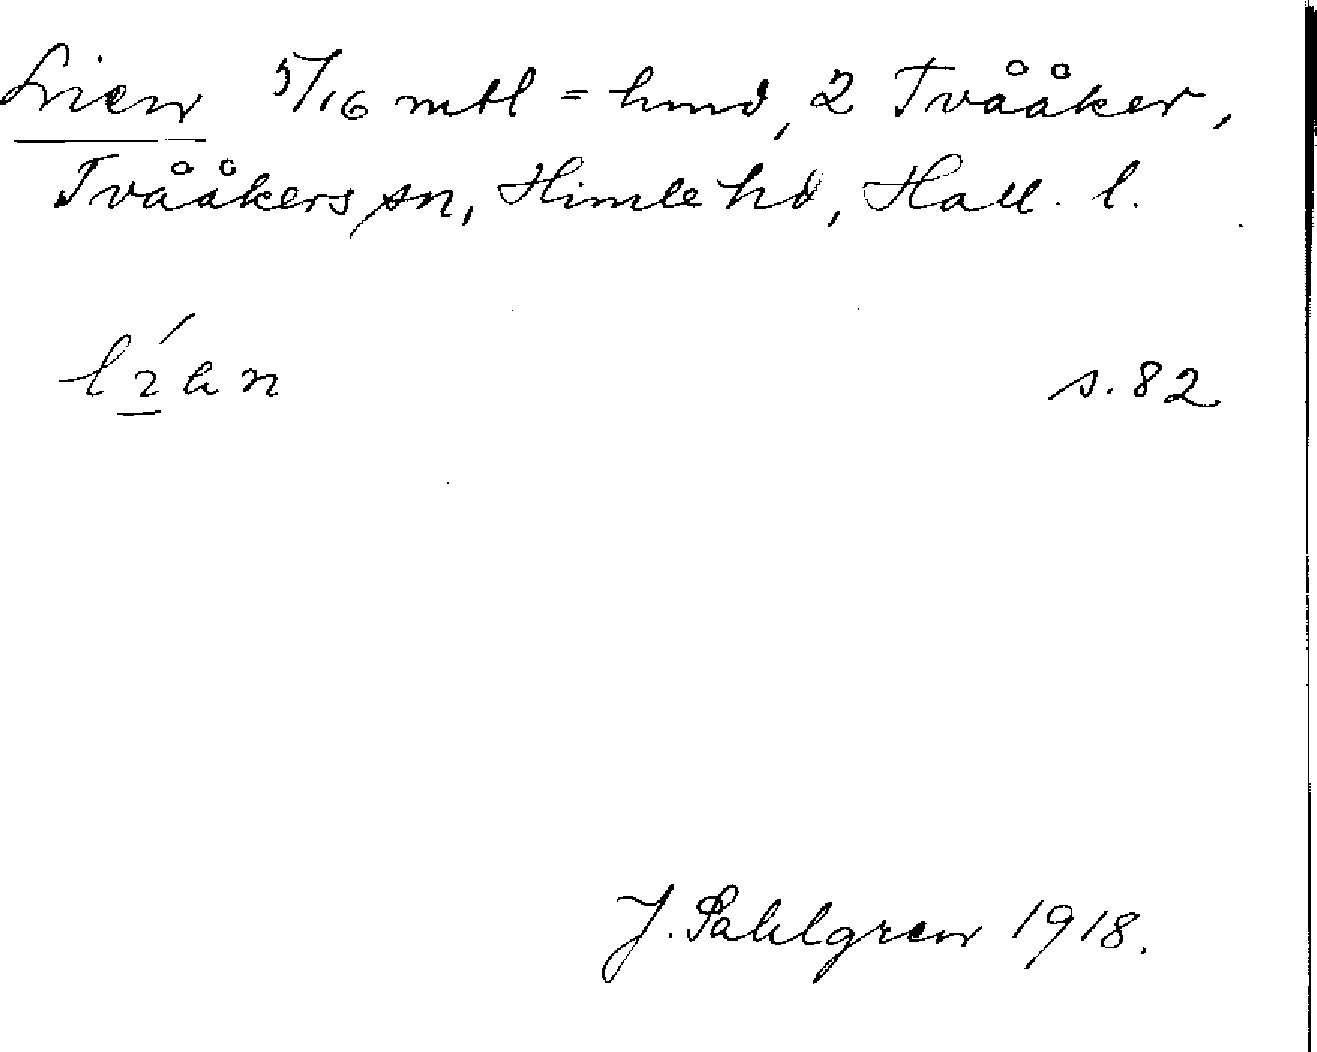 Lien 5/16 mtl = hmd, 2 Tvååker,
Tvååkers sn, Himle hd, Hall. l.
s. 82
J. Sahlgren 1918.